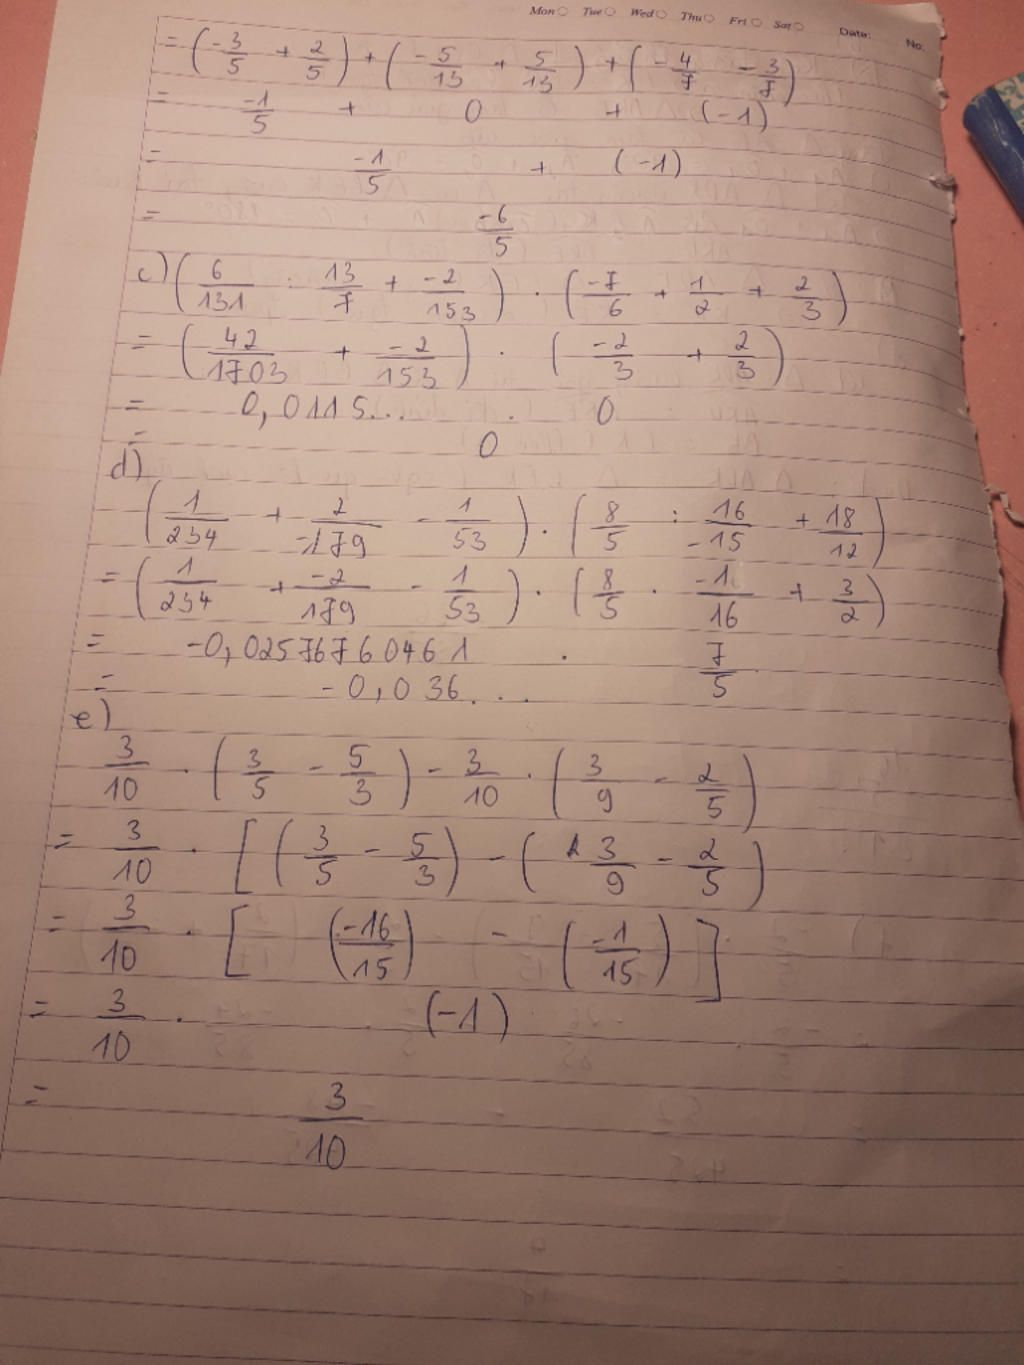 Mon Tue Wed Thu Fri Sat Date: No:
= (-3/5 + 2/5) + (-5/13 + 5/13) + (-4/7 - 3/7)
= -1/5 + 0 + (-1)
= -1/5 + (-1)
= -6/5
c) (6/131 : 13/7 + -2/153) . (-7/6 + 1/2 + 2/3)
= (42/1703 + -2/153) . (-2/3 + 2/3)
= 0,0115... . 0
= 0
d)
(1/234 + 2/-179 - 1/53) . (8/5 : 16/-15 + 18/12)
= (1/234 + -2/179 - 1/53) . (8/5 . -1/16 + 3/2)
= -0,02576760461 . 7/5
= -0,036...
e)
3/10 . (3/5 - 5/3) - 3/10 . (3/9 - 2/5)
= 3/10 . [(3/5 - 5/3) - (3/9 - 2/5)
= 3/10 . [(-16/15) - (-1/15)]
= 3/10 . (-1)
= 3/10